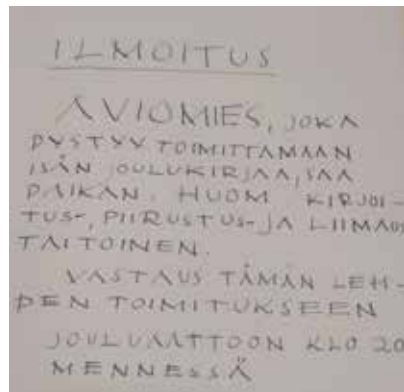 ILMOITUS
AVIOMIES, JOKA
PYSTYY TOIMITTAMAAN
ISÄN JOULUKIRJAA, SAA
PAIKAN. HUOM. KIRJOI-
TUS-, PIIRUSTUS- JA LIIMAUS
TAITOINEN.
VASTAUS TÄMÄN LEH-
DEN TOIMITUKSEEN
JOULUAATTOON KLO 20
MENNESSÄ